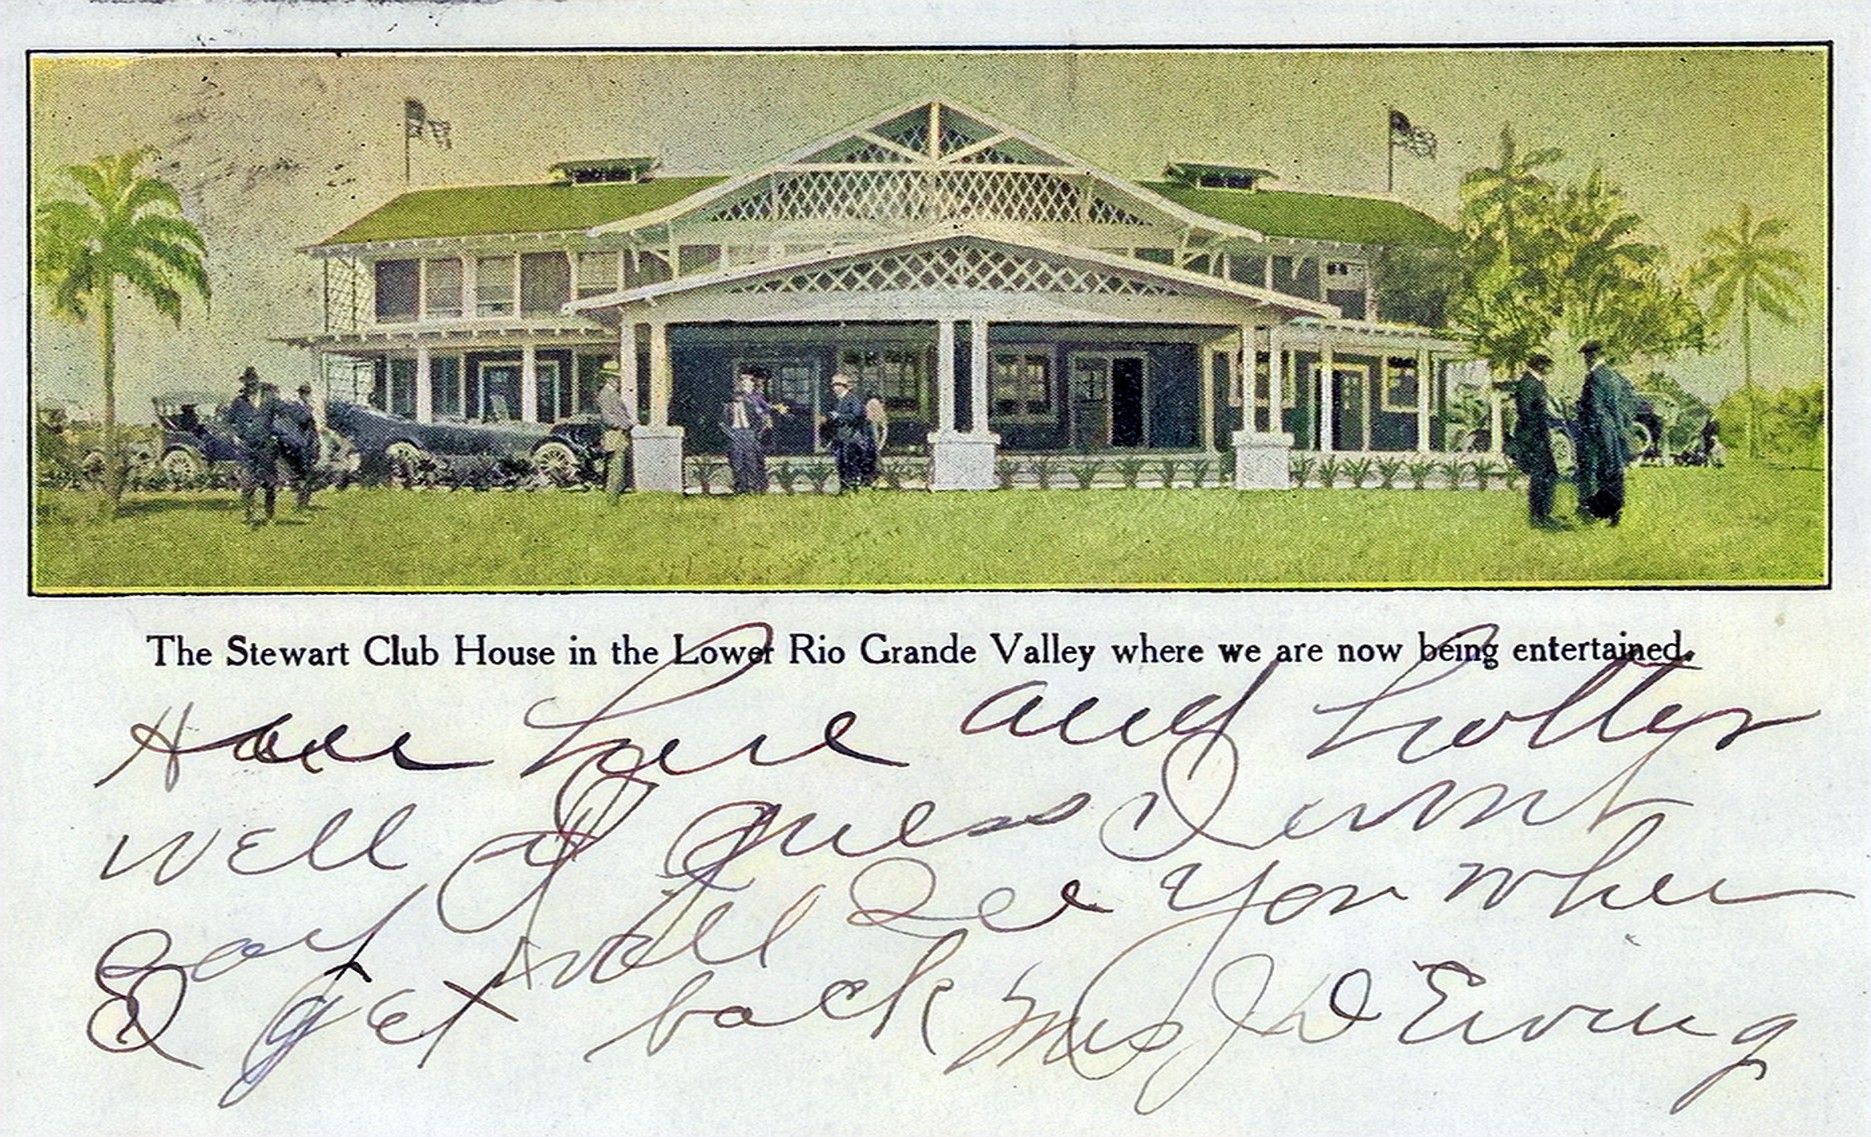 The Stewart Club House in the Lower Rio Grande Valley where we are now being entertained.
here and hotter
well I guess I wont
Say will see you when
I get back Mrs J D Ewing